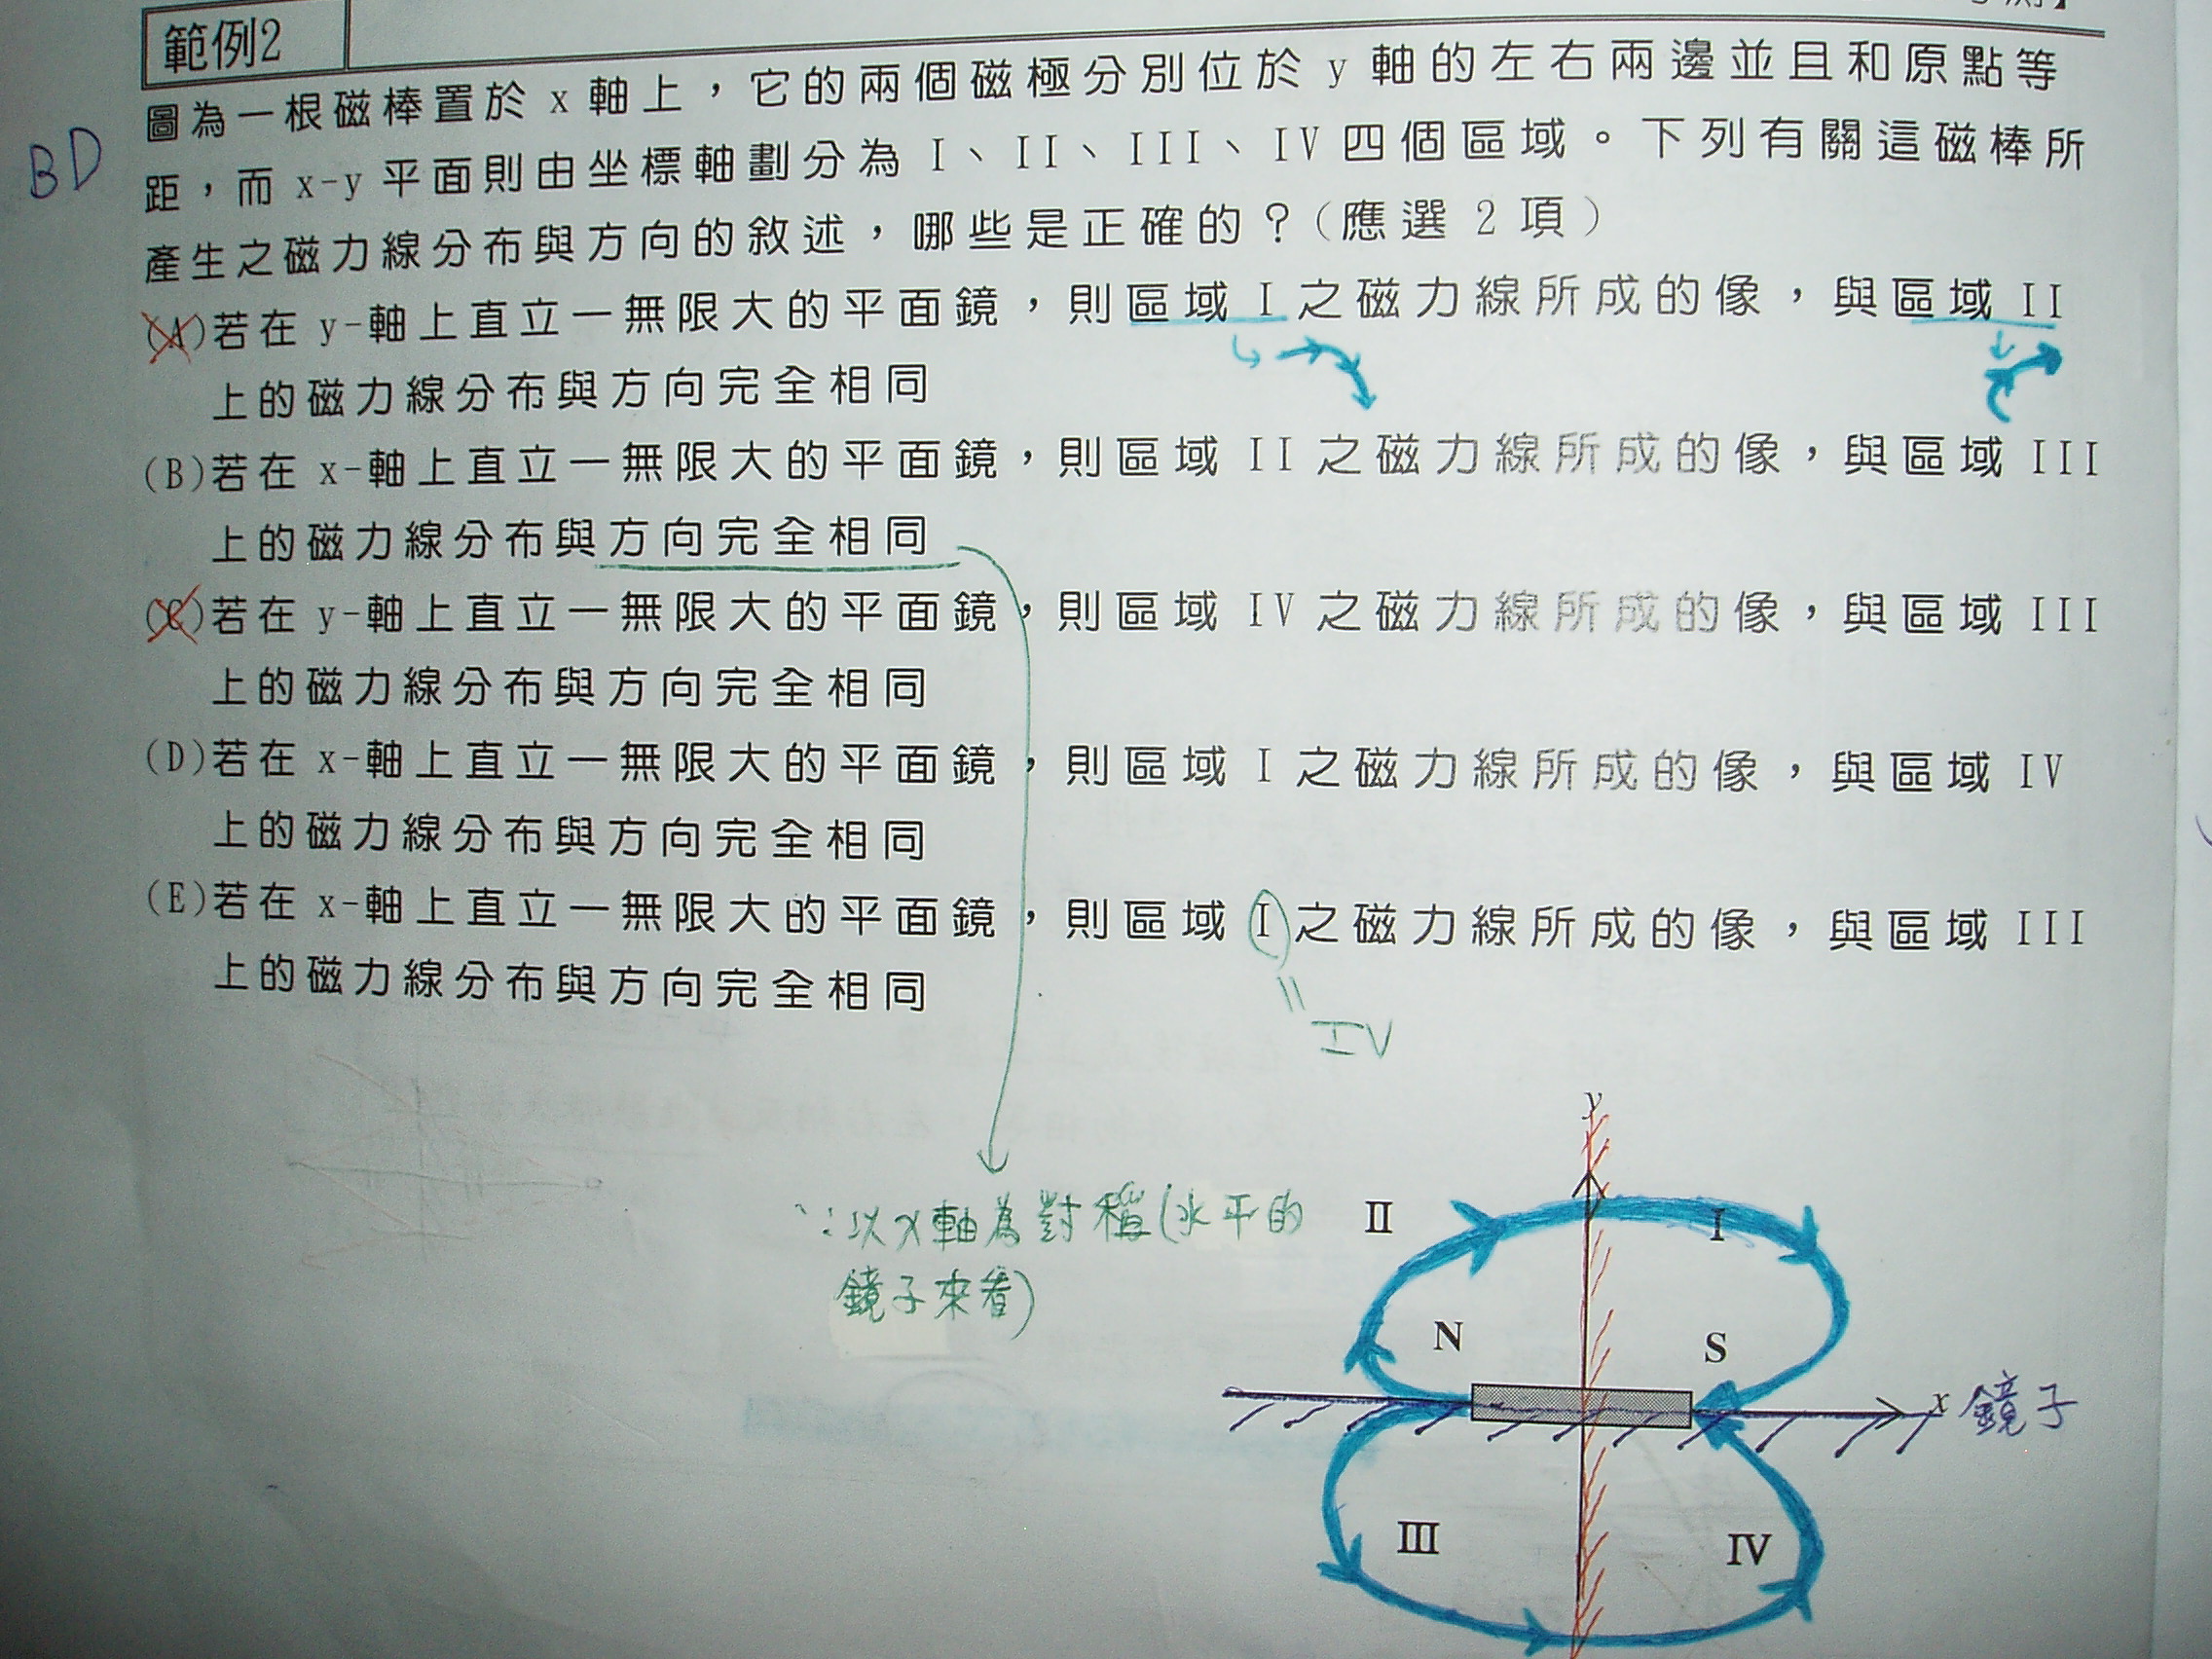 範例2
圖為一根磁棒置於 x 軸上，它的兩個磁極分別位於 y 軸的左右兩邊並且和原點等
BD
距，而 x-y 平面則由坐標軸劃分為 I、II、III、IV 四個區域。下列有關這磁棒所
產生之磁力線分布與方向的敘述，哪些是正確的？（應選 2 項）
(A)若在 y-軸上直立一無限大的平面鏡，則區域 I 之磁力線所成的像，與區域 II
上的磁力線分布與方向完全相同
(B)若在 x-軸上直立一無限大的平面鏡，則區域 II 之磁力線所成的像，與區域 III
上的磁力線分布與方向完全相同
(C)若在 y-軸上直立一無限大的平面鏡，則區域 IV 之磁力線所成的像，與區域 III
上的磁力線分布與方向完全相同
(D)若在 x-軸上直立一無限大的平面鏡，則區域 I 之磁力線所成的像，與區域 IV
上的磁力線分布與方向完全相同
(E)若在 x-軸上直立一無限大的平面鏡，則區域 I 之磁力線所成的像，與區域 III
上的磁力線分布與方向完全相同
=
IV
y
∵以x軸為對稱(水平的
鏡子來看)
II
I
N
S
x 鏡子
III
IV